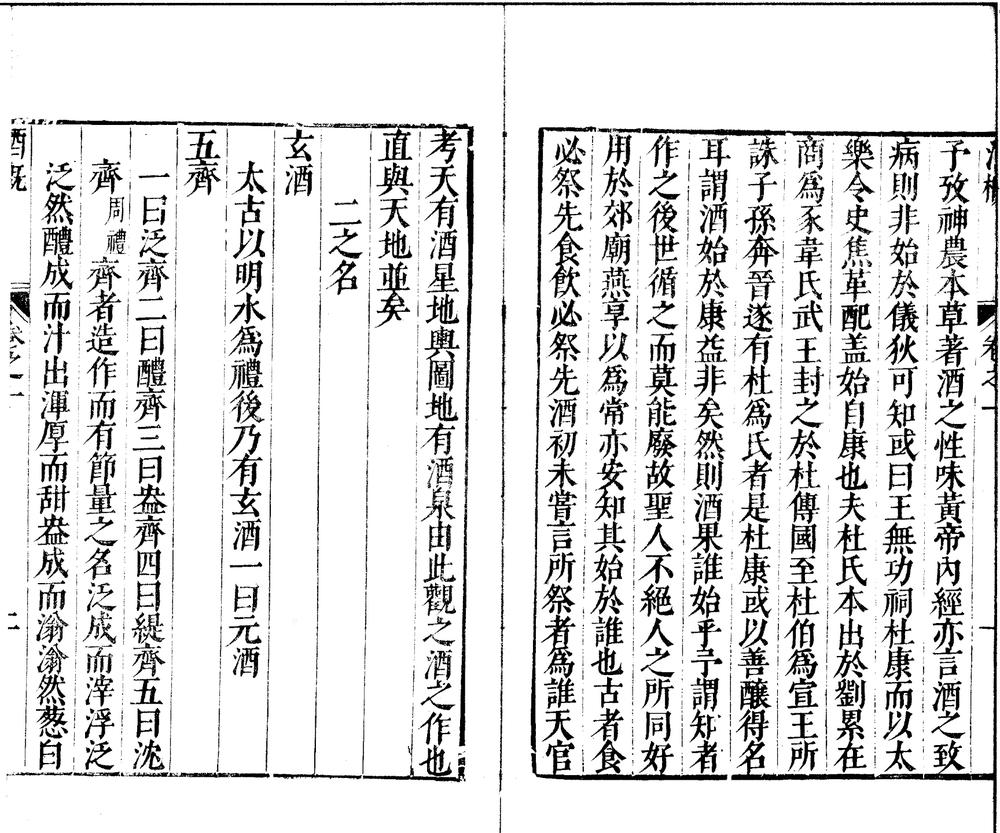 卷之一
一
予攷神農本草著酒之性味黃帝內經亦言酒之致
病則非始於儀狄可知或曰王無功祠杜康而以太
樂令史焦革配盖始自康也夫杜氏本出於劉累在
商爲豕韋氏武王封之於杜傳國至杜伯爲宣王所
誅子孫奔晉遂有杜爲氏者是杜康或以善釀得名
耳謂酒始於康益非矣然則酒果誰始乎予謂知者
作之後世循之而莫能廢故聖人不絕人之所同好
用於郊廟燕享以爲常亦安知其始於誰也古者食
必祭先食飲必祭先酒初未嘗言所祭者爲誰天官
考天有酒星地輿圖地有酒泉由此觀之酒之作也
直與天地並矣
二之名
玄酒
太古以明水爲禮後乃有玄酒一曰元酒
五齊
一曰泛齊二曰醴齊三曰盎齊四曰緹齊五曰沈
齊周禮齊者造作而有節量之名泛成而滓浮泛
泛然醴成而汁出渾厚而甜盎成而滃滃然葱白
酒槪
卷之一
二